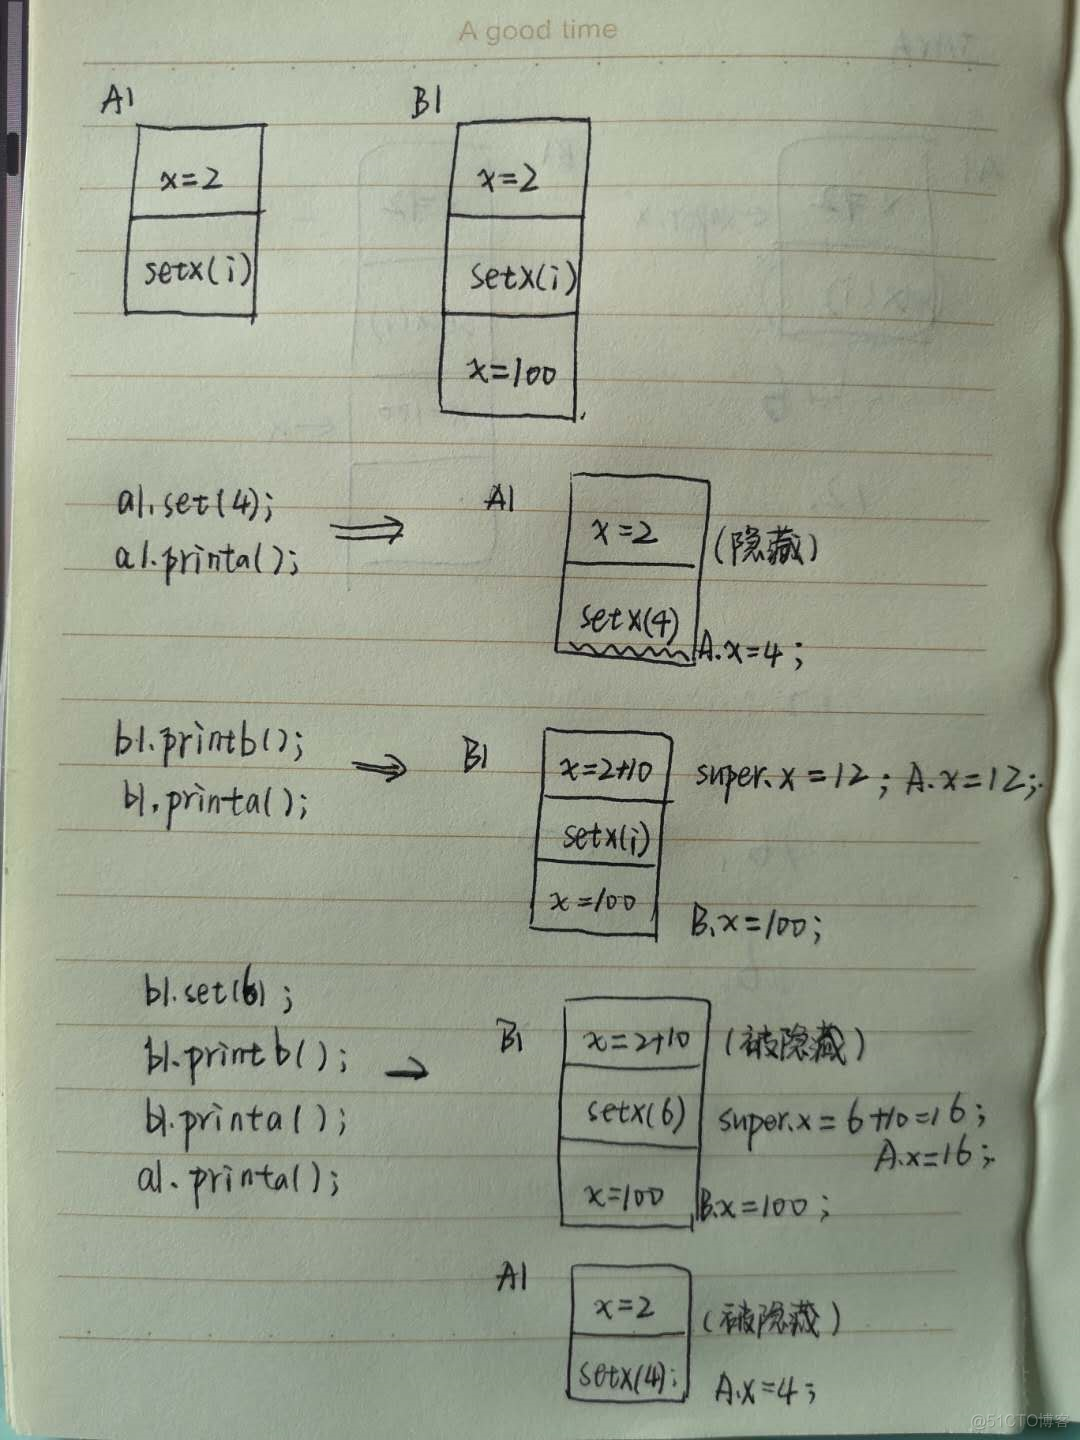 A good time
A1
B1
x=2
x=2
setx(i)
setx(i)
x=100
a1.set(4);
a1.printa();
A1
x=2
(隐藏)
setx(4)
A.x=4;
b1.printb();
b1.printa();
B1
x=2+10
super.x=12; A.x=12;
setx(i)
x=100
B.x=100;
b1.set(6);
b1.printb();
b1.printa();
a1.printa();
B1
x=2+10
(被隐藏)
setx(6)
super.x=6+10=16;
A.x=16;
x=100
B.x=100;
A1
x=2
(被隐藏)
setx(4);
A.x=4;
@51CTO博客